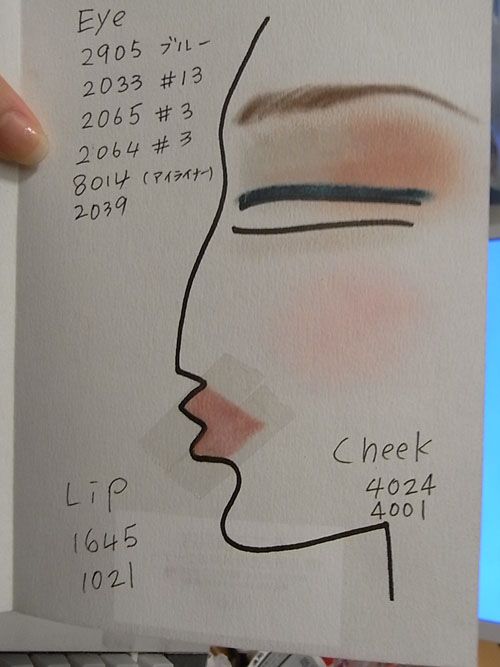 Eye
2905 ブルー
2033 #13
2065 #3
2064 #3
8014 (アイライナー)
2039
Cheek
4024
4001
Lip
1645
1021